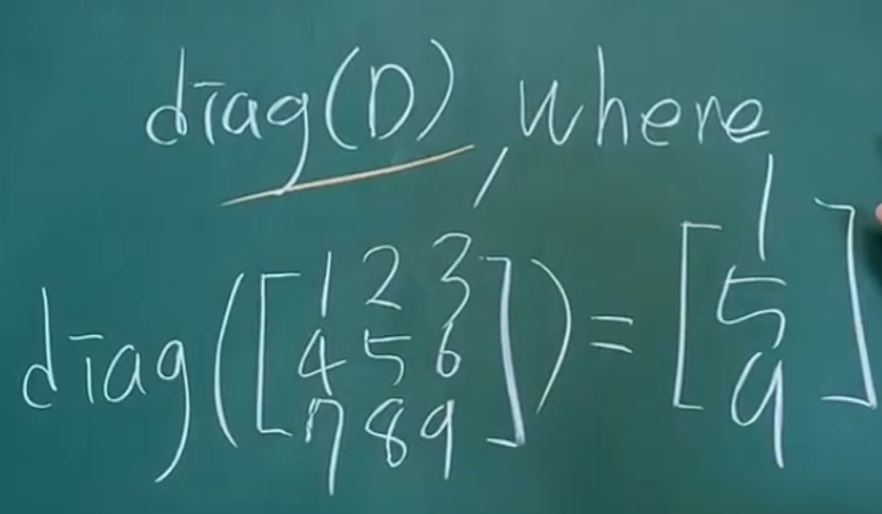 diag(D), where
diag([1 2 3
4 5 6
7 8 9]) = [1
5
9]